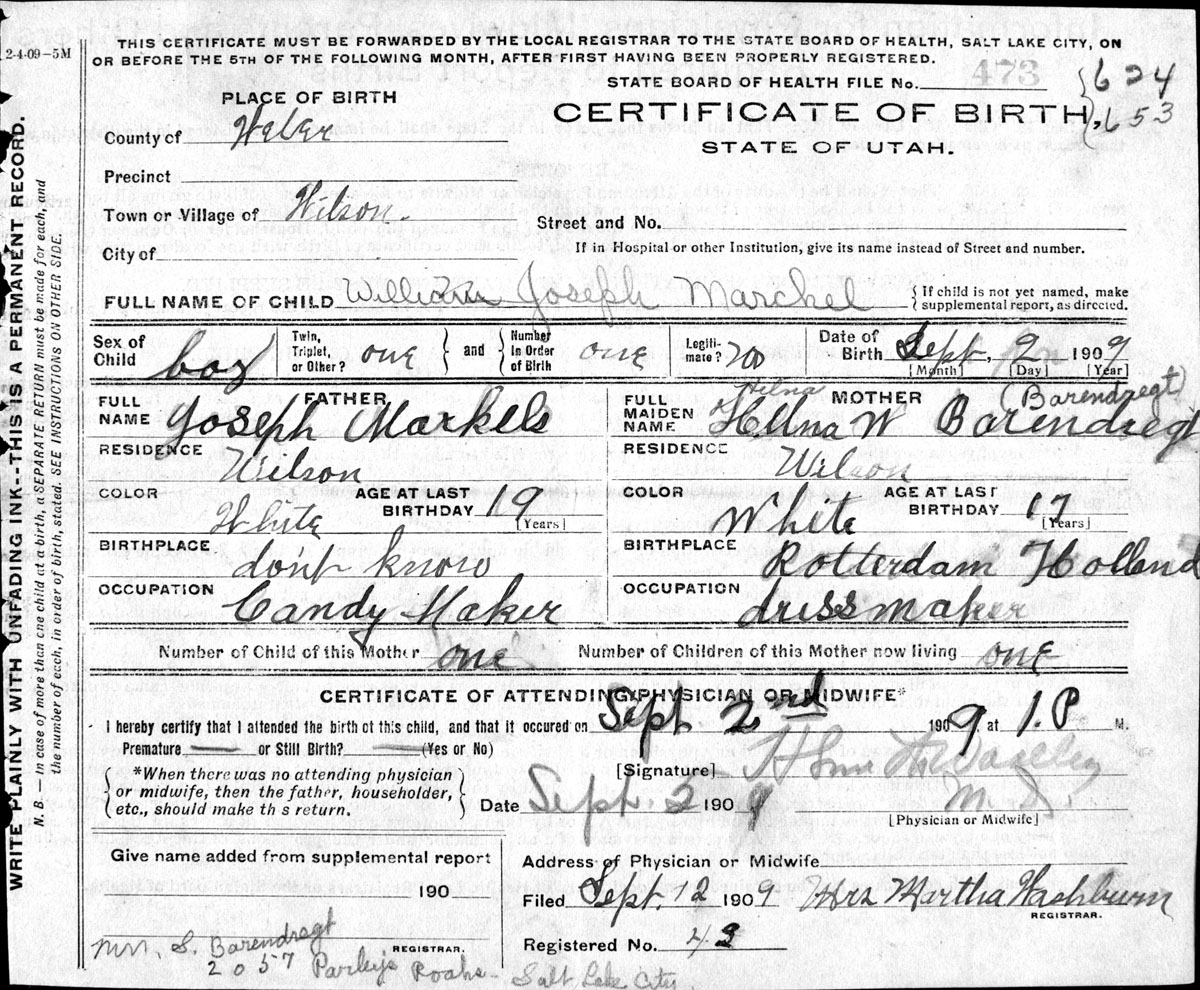 2-4-09-5M
THIS CERTIFICATE MUST BE FORWARDED BY THE LOCAL REGISTRAR TO THE STATE BOARD OF HEALTH, SALT LAKE CITY, ON
OR BEFORE THE 5TH OF THE FOLLOWING MONTH, AFTER FIRST HAVING BEEN PROPERLY REGISTERED.
473
STATE BOARD OF HEALTH FILE No. 624
653
PLACE OF BIRTH
CERTIFICATE OF BIRTH
STATE OF UTAH.
County of Weber
Precinct
Town or Village of Wilson.
Street and No.
City of
If in Hospital or other Institution, give its name instead of Street and number.
FULL NAME OF CHILD William Joseph Marckel { If child is not yet named, make supplemental report, as directed.
Sex of Child boy
Twin, Triplet, or Other? one } and { Number in Order of Birth one
Legitimate? no
Date of Birth Sept. 2 1909
[Month] [Day] [Year]
FATHER
FULL NAME Joseph Markels
RESIDENCE Wilson
COLOR White AGE AT LAST BIRTHDAY 19 [Years]
BIRTHPLACE don't know
OCCUPATION Candy Maker
MOTHER
Hilna (Barendregt)
FULL MAIDEN NAME Hellna W Barendregt
RESIDENCE Wilson
COLOR White AGE AT LAST BIRTHDAY 17 [Years]
BIRTHPLACE Rotterdam Holland
OCCUPATION dressmaker
Number of Child of this Mother one Number of Children of this Mother now living one
CERTIFICATE OF ATTENDING PHYSICIAN OR MIDWIFE*
I hereby certify that I attended the birth of this child, and that it occured on Sept. 2nd 1909 at 1. P M.
Premature or Still Birth? (Yes or No)
{ *When there was no attending physician or midwife, then the father, householder, etc., should make this return. }
[Signature]
M. D.
Date Sept. 2 1909 [Physician or Midwife]
Give name added from supplemental report
190
REGISTRAR.
Address of Physician or Midwife
Filed Sept. 12 1909 Mrs Martha Washburn
REGISTRAR.
Registered No. 43
Mrs. S. Barendregt
2057 Parleys Roahs- Salt Lake City.
WRITE PLAINLY WITH UNFADING INK--THIS IS A PERMANENT RECORD.
N. B. — In case of more than one child at a birth, a SEPARATE RETURN must be made for each, and
the number of each, in order of birth, stated. SEE INSTRUCTIONS ON OTHER SIDE.